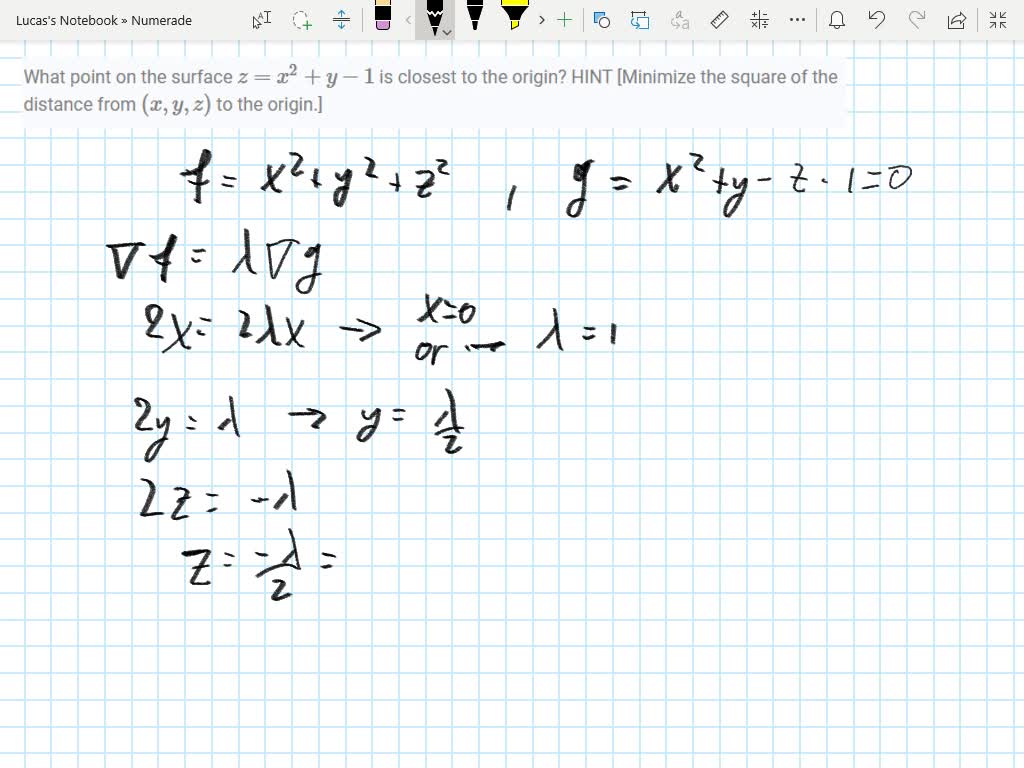 Lucas's Notebook » Numerade
What point on the surface z = x² + y − 1 is closest to the origin? HINT [Minimize the square of the
distance from (x, y, z) to the origin.]
f = x² + y² + z² , g = x² + y - z - 1 = 0
∇f = λ∇g
2x = 2λx → x=0
or λ = 1
2y = λ → y = λ/2
2z = -λ
z = -λ/2 =